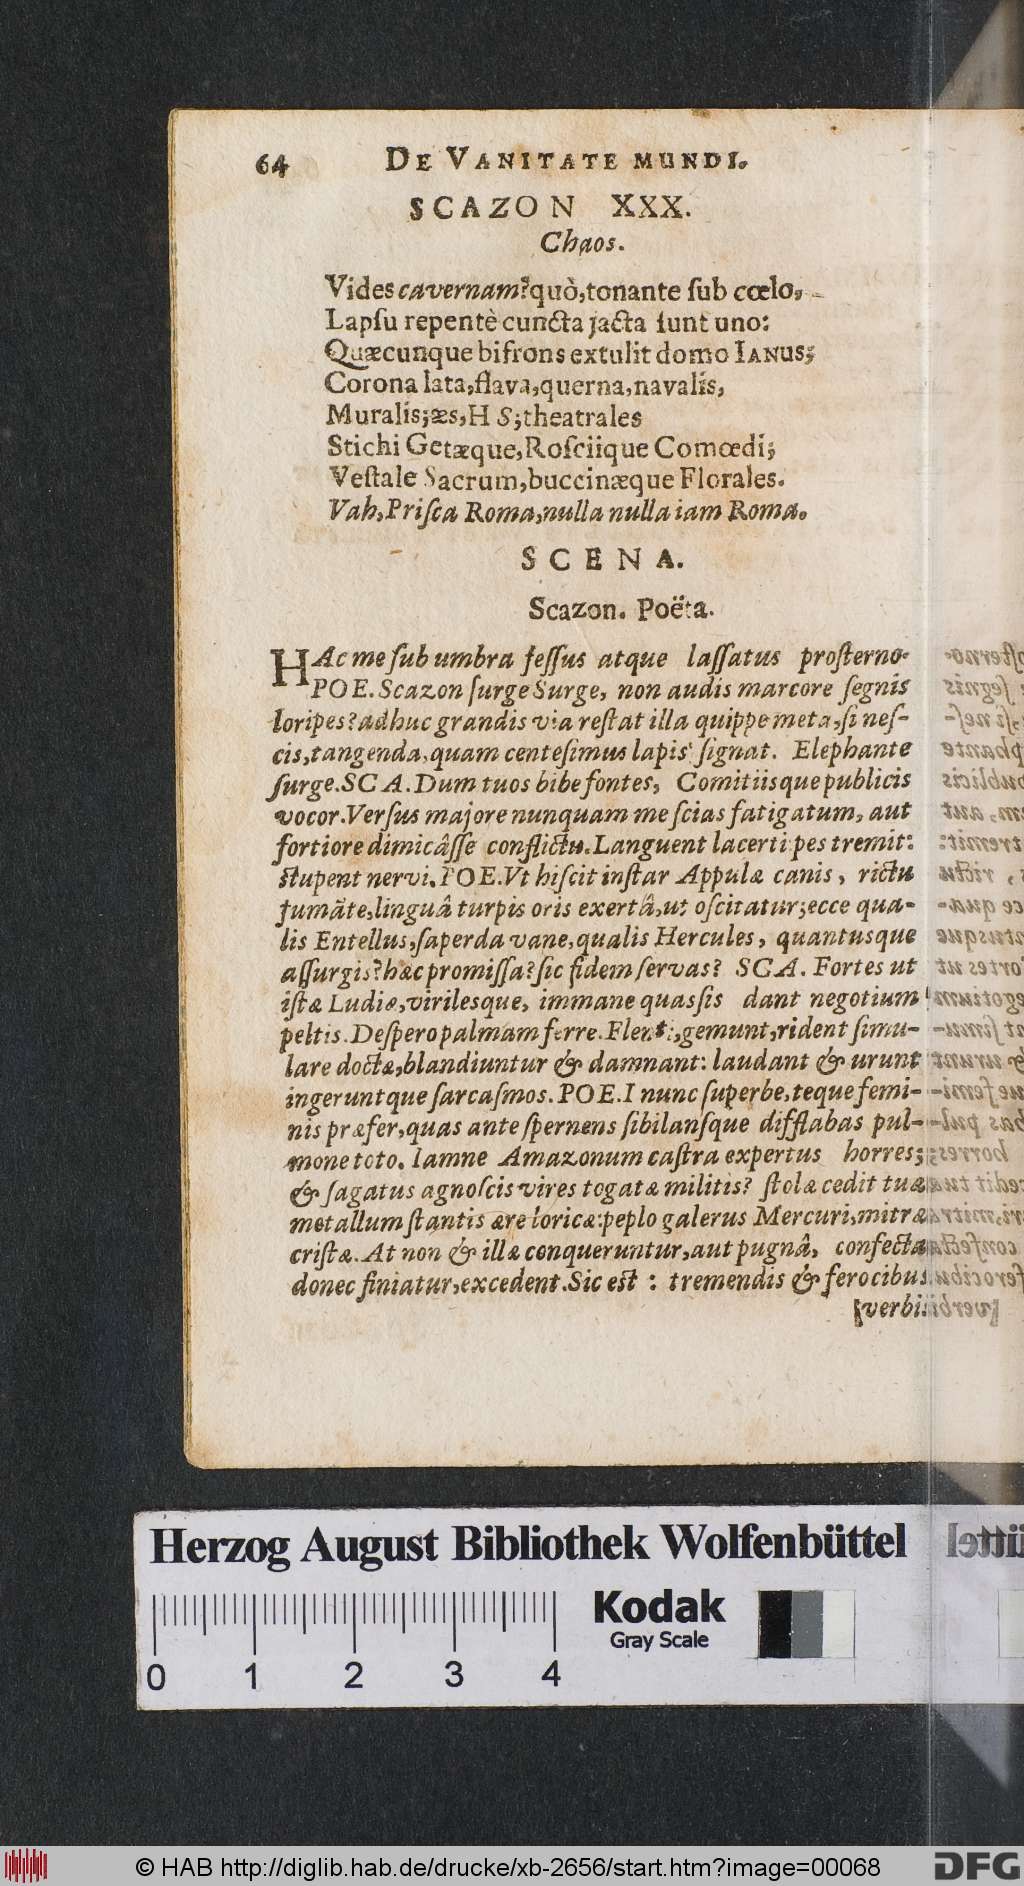 64 DE VANITATE MUNDI.
SCAZON XXX.
Chaos.
Vides cavernam? quò, tonante ſub cœlo,
Lapſu repentè cuncta jacta ſunt uno:
Quæcunque bifrons extulit domo IANUS;
Corona lata, flava, querna, navalis,
Muralis; æs, H S; theatrales
Stichi Getæque, Roſciique Comœdi;
Veſtale Sacrum, buccinæque Florales.
Vah, Priſca Roma, nulla nulla iam Roma.
SCENA.
Scazon. Poëta.
HAc me ſub umbra feſſus atque laſſatus proſterno.
POE. Scazon ſurge Surge, non audis marcore ſegnis
loripes? adhuc grandis via reſtat illa quippe meta, ſi neſ-
cis, tangenda, quam centeſimus lapis ſignat. Elephante
ſurge. SCA. Dum tuos bibe fontes, Comitiisque publicis
vocor. Verſus majore nunquam me ſcias fatigatum, aut
fortiore dimicâſſe conflictu. Languent lacerti pes tremit:
ſtupent nervi. POE. Vt hiſcit inſtar Appulæ canis, rictu
fumãte, linguâ turpis oris exertâ, ut oſcitatur; ecce qua-
lis Entellus, ſaperda vane, qualis Hercules, quantusque
aſſurgis? hæc promiſſa? ſic fidem ſervas? SCA. Fortes ut
iſtæ Ludiæ, virilesque, immane quasſis dant negotium
peltis. Deſpero palmam ferre. Flent, gemunt, rident ſimu-
lare doctæ, blandiuntur & damnant: laudant & urunt
ingeruntque ſarcaſmos. POE. I nunc ſuperbe, teque femi-
nis præfer, quas ante ſpernens ſibilanſque difflabas pul-
mone toto. Iamne Amazonum caſtra expertus horres;
& ſagatus agnoſcis vires togatæ militis? ſtolæ cedit tuæ
metallum ſtantis ære loricæ: peplo galerus Mercuri, mitræ
criſtæ. At non & illæ conqueruntur, aut pugnâ, confecta
donec finiatur, excedent. Sic eſt: tremendis & ferocibus
[verbis
Herzog August Bibliothek Wolfenbüttel
0 1 2 3 4
Kodak
Gray Scale
© HAB http://diglib.hab.de/drucke/xb-2656/start.htm?image=00068
DFG